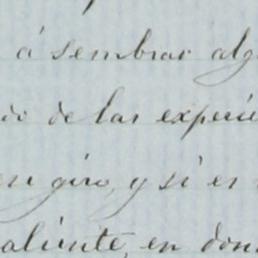 á sembrar alg
do de las experie
en giro, y si es
aliente, en don